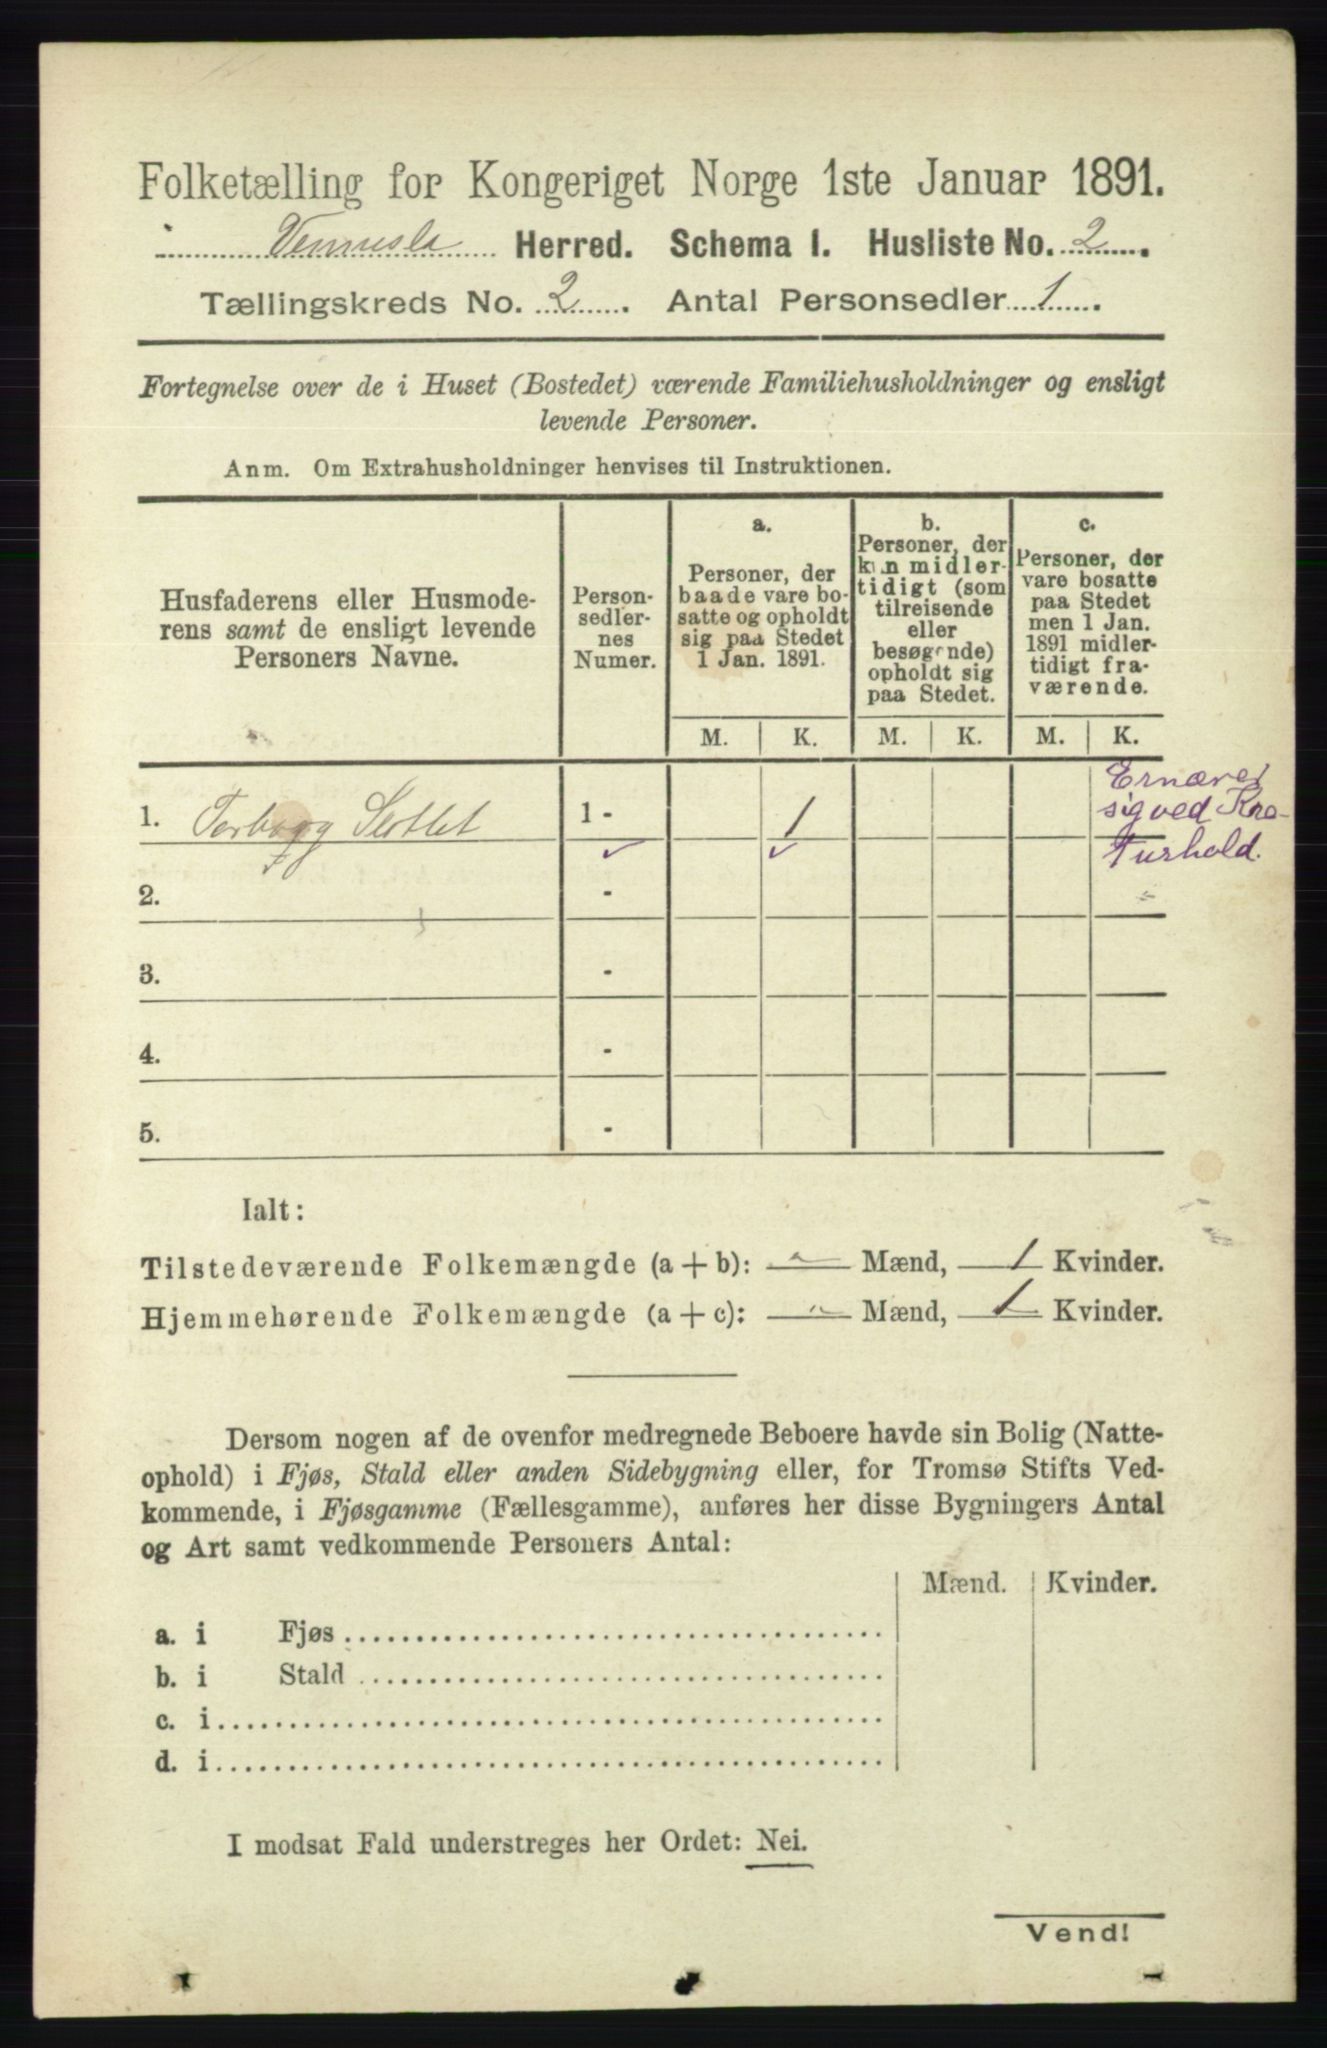 Folketælling for Kongeriget Norge 1ste Januar 1891.
Vennesla Herred. Schema 1. Husliste No. 2.
Tællingskreds No. 2. Antal Personsedler 1.
Fortegnelse over de i Huset (Bostedet) værende Familiehusholdninger og ensligt
levende Personer.
Anm. Om Extrahusholdninger henvises til Instruktionen.
Husfaderens eller Husmode-
rens samt de ensligt levende
Personers Navne.
Person-
sedler-
nes
Numer.
a.
Personer, der
baade vare bo-
satte og opholdt
sig paa Stedet
1 Jan. 1891.
b.
Personer, der
kun midler-
tidigt (som
tilreisende
eller
besøgende)
opholdt sig
paa Stedet.
c.
Personer, der
vare bosatte
paa Stedet
men 1 Jan.
1891 midler-
tidigt fra-
værende.
M. K. M. K. M. K.
Ernærer
sig ved Kre-
aturhold.
1. Torborg 1 - 1
2. -
3. -
4. -
5. -
Ialt:
Tilstedeværende Folkemængde (a + b): - Mænd, 1 Kvinder.
Hjemmehørende Folkemængde (a + c): - Mænd, 1 Kvinder.
Dersom nogen af de ovenfor medregnede Beboere havde sin Bolig (Natte-
ophold) i Fjøs, Stald eller anden Sidebygning eller, for Tromsø Stifts Ved-
kommende, i Fjøsgamme (Fællesgamme), anføres her disse Bygningers Antal
og Art samt vedkommende Personers Antal:
Mænd. Kvinder.
a. i Fjøs
b. i Stald
c. i
d. i
I modsat Fald understreges her Ordet: Nei.
Vend!